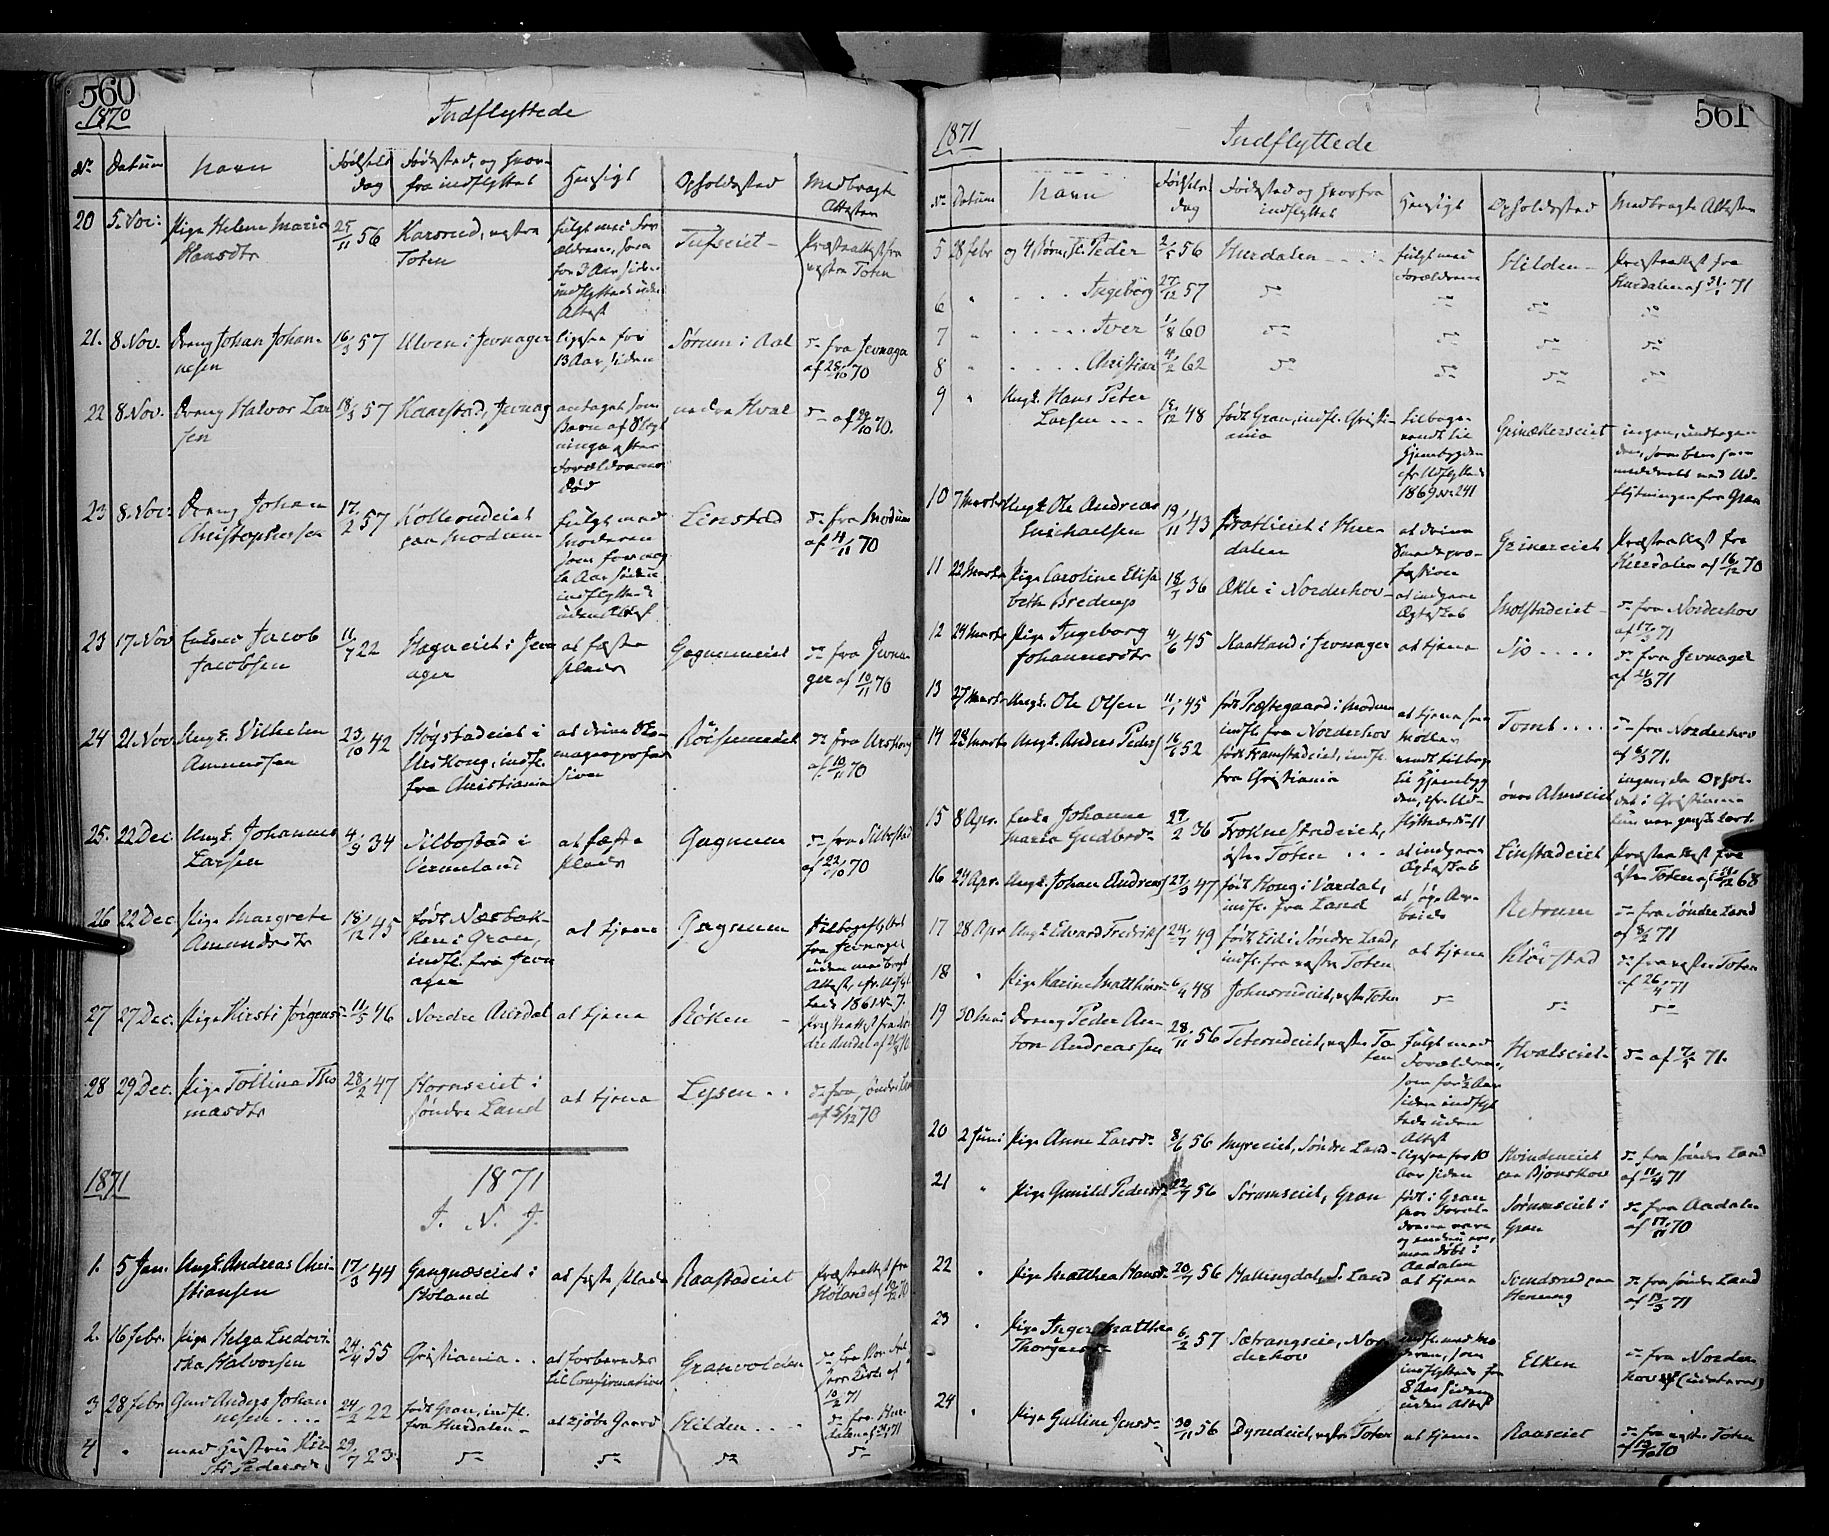 560
1870
Indflyttede
No Datum Navn Fødsels dag Fødested, og hvorfra indflyttet Hensigt Opholdssted Medbragte Attester
20 5. Nov: Pige Helene Maria Hansdtr 25/11 56 Karsrud, vestre Toten fulgt med Forældrene, som for 3 Aar siden indflyttede uden Attest Tufseiet Præsteattest fra vestre Toten
21. 8 Nov. Dreng Johan Johannesen 16/3 57 Ulven i Jevnager ligesaa for 13 Aar siden Sørum i Aal do fra Jevnager af 28/10 70
22 8 Nov. Dreng Halvor Larsen 18/3 57 Kaarstad, Jevnag antaget som Barn af Slægtninge efter Forældrenes Død nedre Hval do af 29/10 70.
23 8. Nov: Dreng Johan Christophersen 17/2 57 Kollerudeiet paa Modum fulgt med Moderen som for Aar siden indflyttede uden Attest Linstad do fra Modum af 4/11 70
23 17 Nov Enkem. Jacob Jacobsen 11/7 22 Hagneiet i Jevnager at fæste Plads Gagnumeiet do fra Jevnager af 10/11 70
24 21 Nov Ungk. Vilhelm Amundsen 23/10 42 Høgstadeiet i Urskoug, indfl. fra Christiania at drive Skomagerprofession Røisumeiet do fra Urskoug af 10/11 70
25. 22 Dec. Ungk. Johannes Larsen 4/9 34 Silbostad i Vermeland at fæste Plads Gagnum do fra Silbostad af 22/10 70
26 22 Dec Pige Margrete Amundsdtr 18/12 45 født Næsbakken i Gran, indfl. fra Jevnager at tjene Gagnum tilbageflyttet fra Jevnager uden medbragt Attest, cfr. Udflyttede 1861 No 7.
27 27 Dec. Pige Kirsti Jørgensd 11/5 46 Nordre Aurdal at tjene Røken Præsteattest fra Nordre Aurdal af
28 29 Dec. Pige Tolline Thomasdtr 28/2 47 Hornseiet i Søndre Land at tjene Lyssen .. do fra Søndre Land af 5/12 70
1871
1871
I. N. J.
1. 5 Jan. Ungk. Andreas Christiansen 17/3 44 Gangnæseiet i Høland at fæste Plads Raastadeiet Præsteattest fra Høland af 10/12 70
2. 16 febr. Pige Helga Ludovika Halvorsen 24/4 55 Christiania .. at forberedes til Confirmation Granvolden
3 28 febr Gmd Anders Johannesen .... 24/2 22 født Gran, indfl. fra Hurdalen at kjøbe Gaard Hilden .. do fra Hurdalen af 31/1 71
4 " med Hustru Kirsti Pedersd 29/7 23. do do do do
561
1871
Indflyttede
No Datum Navn Fødselsdag Fødested og hvorfra indflyttet Hensigt Opholdssted Medbragte Attester
5 28 febr og 4 Børn, sc. Peder 2/5 56 Hurdalen fulgt med Forældrene Hilden Præsteattest fra Hurdalen af 31/1 71
6 " .... Ingeborg 27/12 57 do do do do
7 " ..... Iver 1/8 60 do do do do
8 " ..... Christian 4/2 62 do do do do
9 " Ungk. Hans Peter Larsen ... 12 48 født Gran, indfl. Christiania tilbagevendt til Hjembygden cfr. Udflyttede 1869 No 241 Grinakerseiet ingen, undtagen den, som blev ham meddeelt ved Udflytningen fra Gran
10 7 Marts Ungk. Ole Andreas Michaelsen 19/11 43 i Hurdalen at drive Smedeprofession Grinereiet Præsteattest fra Hurdalen af 16/12 70
11 22 Marts Pige Caroline Elisabeth Bredrup 18 36 Økle i Norderhov at indgaae Ægteskab Molstadeiet do fra Norderhov af 17/3 71
12 24 Marts Pige Ingeborg Johannesdtr 4/6 45 Raaland i Jevnager at tjene Sjo .... do fra Jevnager af 24/3 71
13 27 Marts Ungk. Ole Olsen 11/1 45 født Præstegaard i Modum indfl. fra Norderhov at tjene som Møller Tomt .... do fra Norderhov af 8/3 71.
14 28 Marts Ungk. Anders Peders 16 52 født Framstadeiet, indfl. fra Christiania vendt tilbage til Hjembygden, cfr. Udflyttede øvre Alm­seiet ingen, da Opholdet i Christiania kun var ganske kort
15 8 Apr. Enke Johanne Maria Gudbrds 27/2 36 Froknestadeiet, østre Toten ... at indgaae Ægteskab Linstadeiet Præsteattest fra østre Toten af 31/12 68
16 24 Apr. Ungk. Johan Andreas 27/3 47 født Houg i Vardal, indfl. fra Land at søge Arbeide Retrum do fra Søndre Land af 8/2 71
17 28 Apr Ungk. Edvard Fredriks 24/7 49 født Eid i Søndre Land, indfl. fra vestre Toten at tjene Kløvstad do fra vestre Toten af 26/4 71
18 " Pige Karine Matthias 6/4 48 Johnsrudeiet, vestre Toten do do do
19 30 Mai Dreng Peder Anton Andreassen 28/11 56 Teterudeiet, vestre Toten fulgt med Forældrene, som for 2 Aar siden indflyttede uden Attest Hvalseiet do af 7/5 71.
20 2 Juni Pige Anne Larsd 8/6 56 Myreeiet, Søndre Land ligesaa for 10 Aar siden Kvindeneiet paa Bjoneskov do fra Søndre Land af 11/4 71
21 " Pige Gunild Pedersd 22/7 56 Sørumseiet, Gran født i Gran hvor Forældrene vare men døbt i Aadalen Sørumseiet i Gran do fra Aadalen af 17/11 70
22 " Pige Matthea Hansd 20/7 56 Hallingdal, S. Land at tjene Svendsrud paa Hennung do fra Søndre Land af 13/3 71
23 " Pige Inger Matthea Thorgersd 6/2 57 Sætrangseie, Norderhov indfl. med Moderen, som indflyttede for 8 Aar siden uden Attest Elken do fra Norderhov
24 " Pige Gulline Jensd 30/11 56 Dyrudeiet, vestre Toten at tjene Raaseiet do fra vestre Toten af 13/10 70